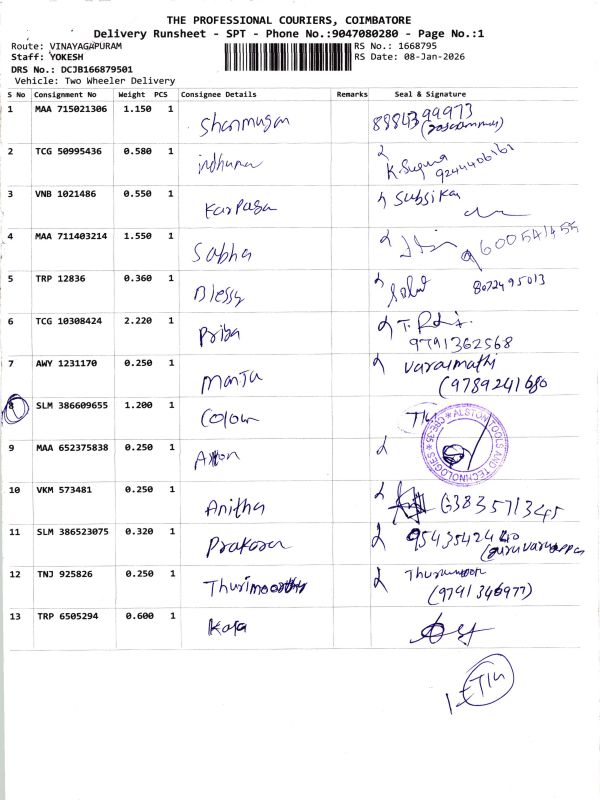 THE PROFESSIONAL COURIERS, COIMBATORE
Delivery Runsheet - SPT - Phone No.:9047080280 - Page No.:1
Route: VINAYAGAPURAM
Staff: YOKESH
DRS No.: DCJB166879501
Vehicle: Two Wheeler Delivery
RS No.: 1668795
RS Date: 08-Jan-2026
S No Consignment No Weight PCS Consignee Details Remarks Seal & Signature
1 MAA 715021306 1.150 1 Shanmugan
2 TCG 50995436 0.580 1 indhuma K.Suguna
3 VNB 1021486 0.550 1 Karpaga Subsika
4 MAA 711403214 1.550 1 Sabha 9600541455
5 TRP 12836 0.360 1 Blessy 8072495013
6 TCG 10308424 2.220 1 Priya
9791362568
7 AWY 1231170 0.250 1 Manju Varaimathi
(9789241680
8 SLM 386609655 1.200 1 Colour TIW
ALSTON TOOLS AND TECHNOLOGIES * CBE-35 *
9 MAA 652375838 0.250 1
10 VKM 573481 0.250 1 Anitha 6383571345
11 SLM 386523075 0.320 1 Prakasan
(guruvarayappan
12 TNJ 925826 0.250 1 Thurimoorthy
(9791346977)
13 TRP 6505294 0.600 1 Kaja
1-TIW